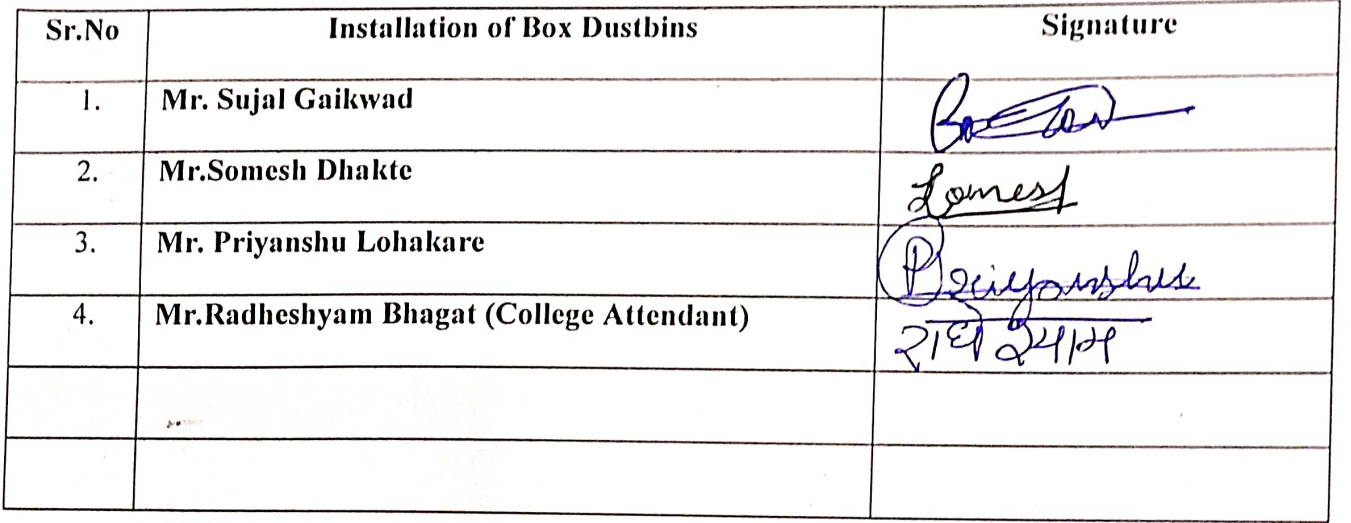 Sr.No Installation of Box Dustbins Signature
1. Mr. Sujal Gaikwad
2. Mr.Somesh Dhakte Somesh
3. Mr. Priyanshu Lohakare Priyanshu
4. Mr.Radheshyam Bhagat (College Attendant) राधेश्याम